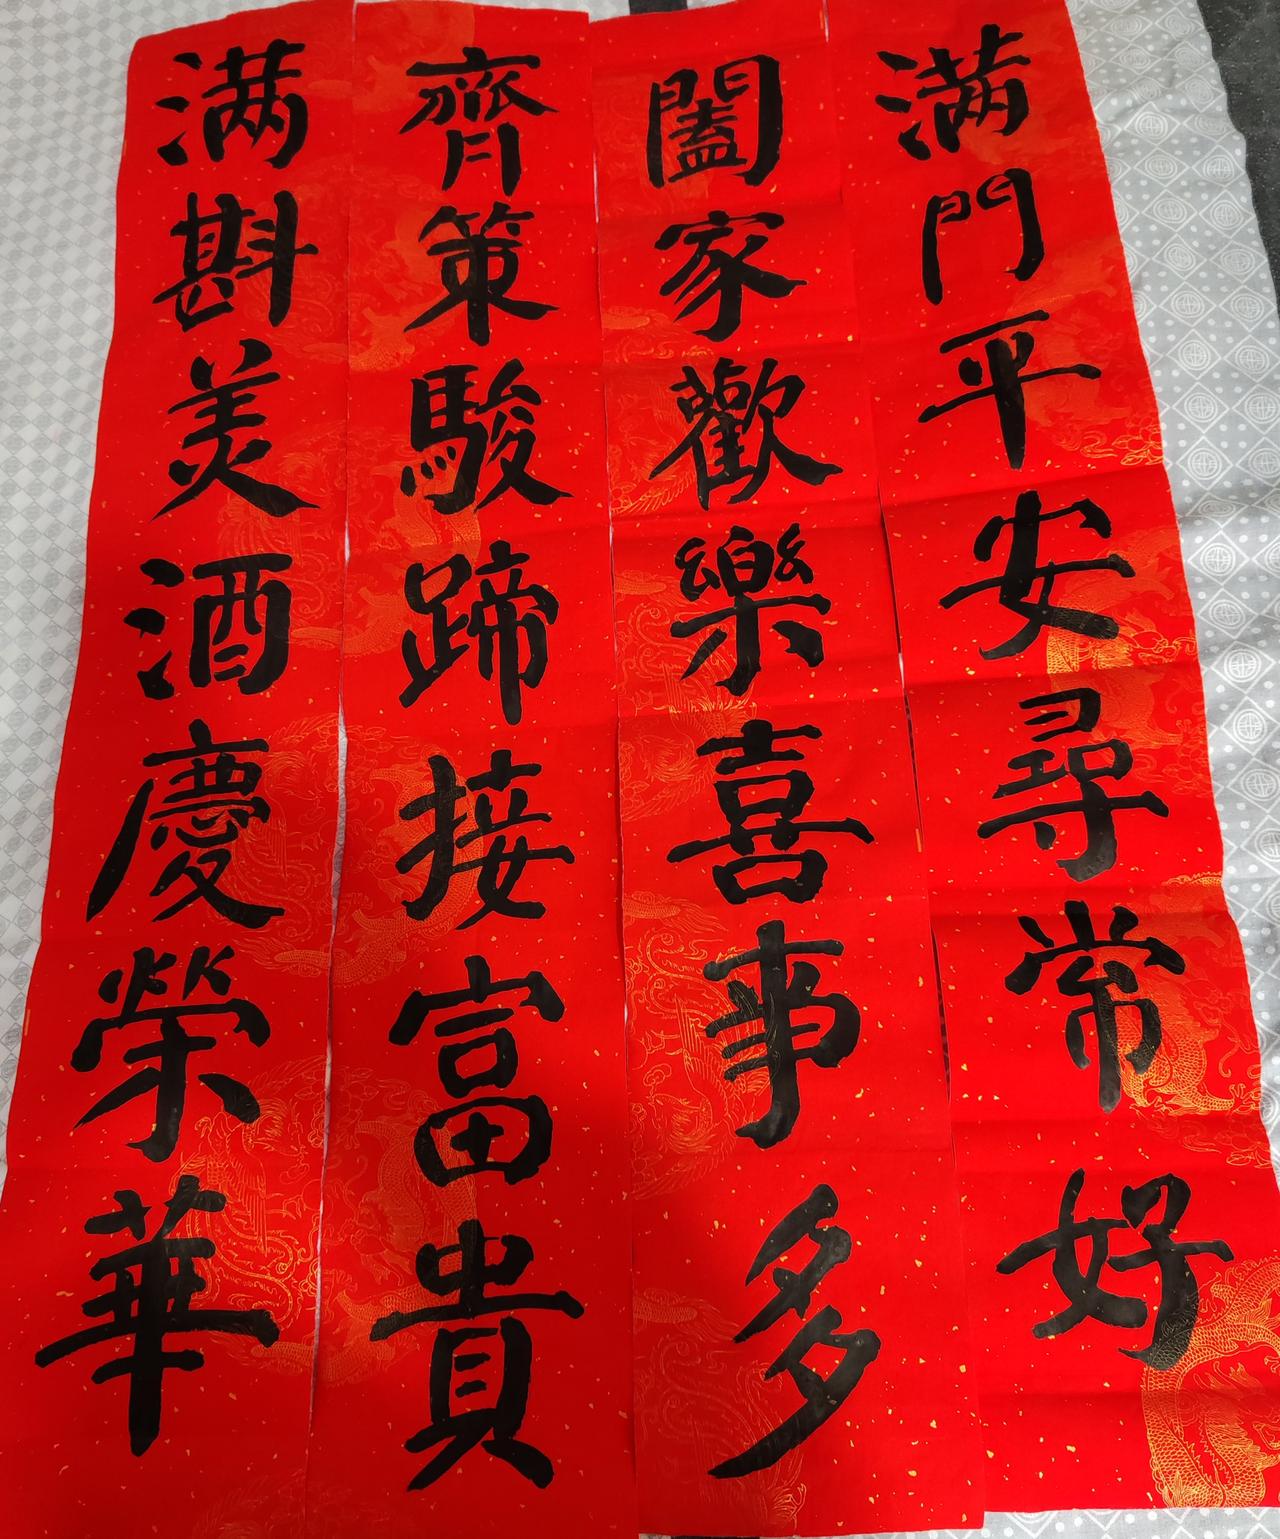 满門平安尋常好
闔家歡樂喜事多
齊策駿蹄接富貴
满斟美酒慶榮華